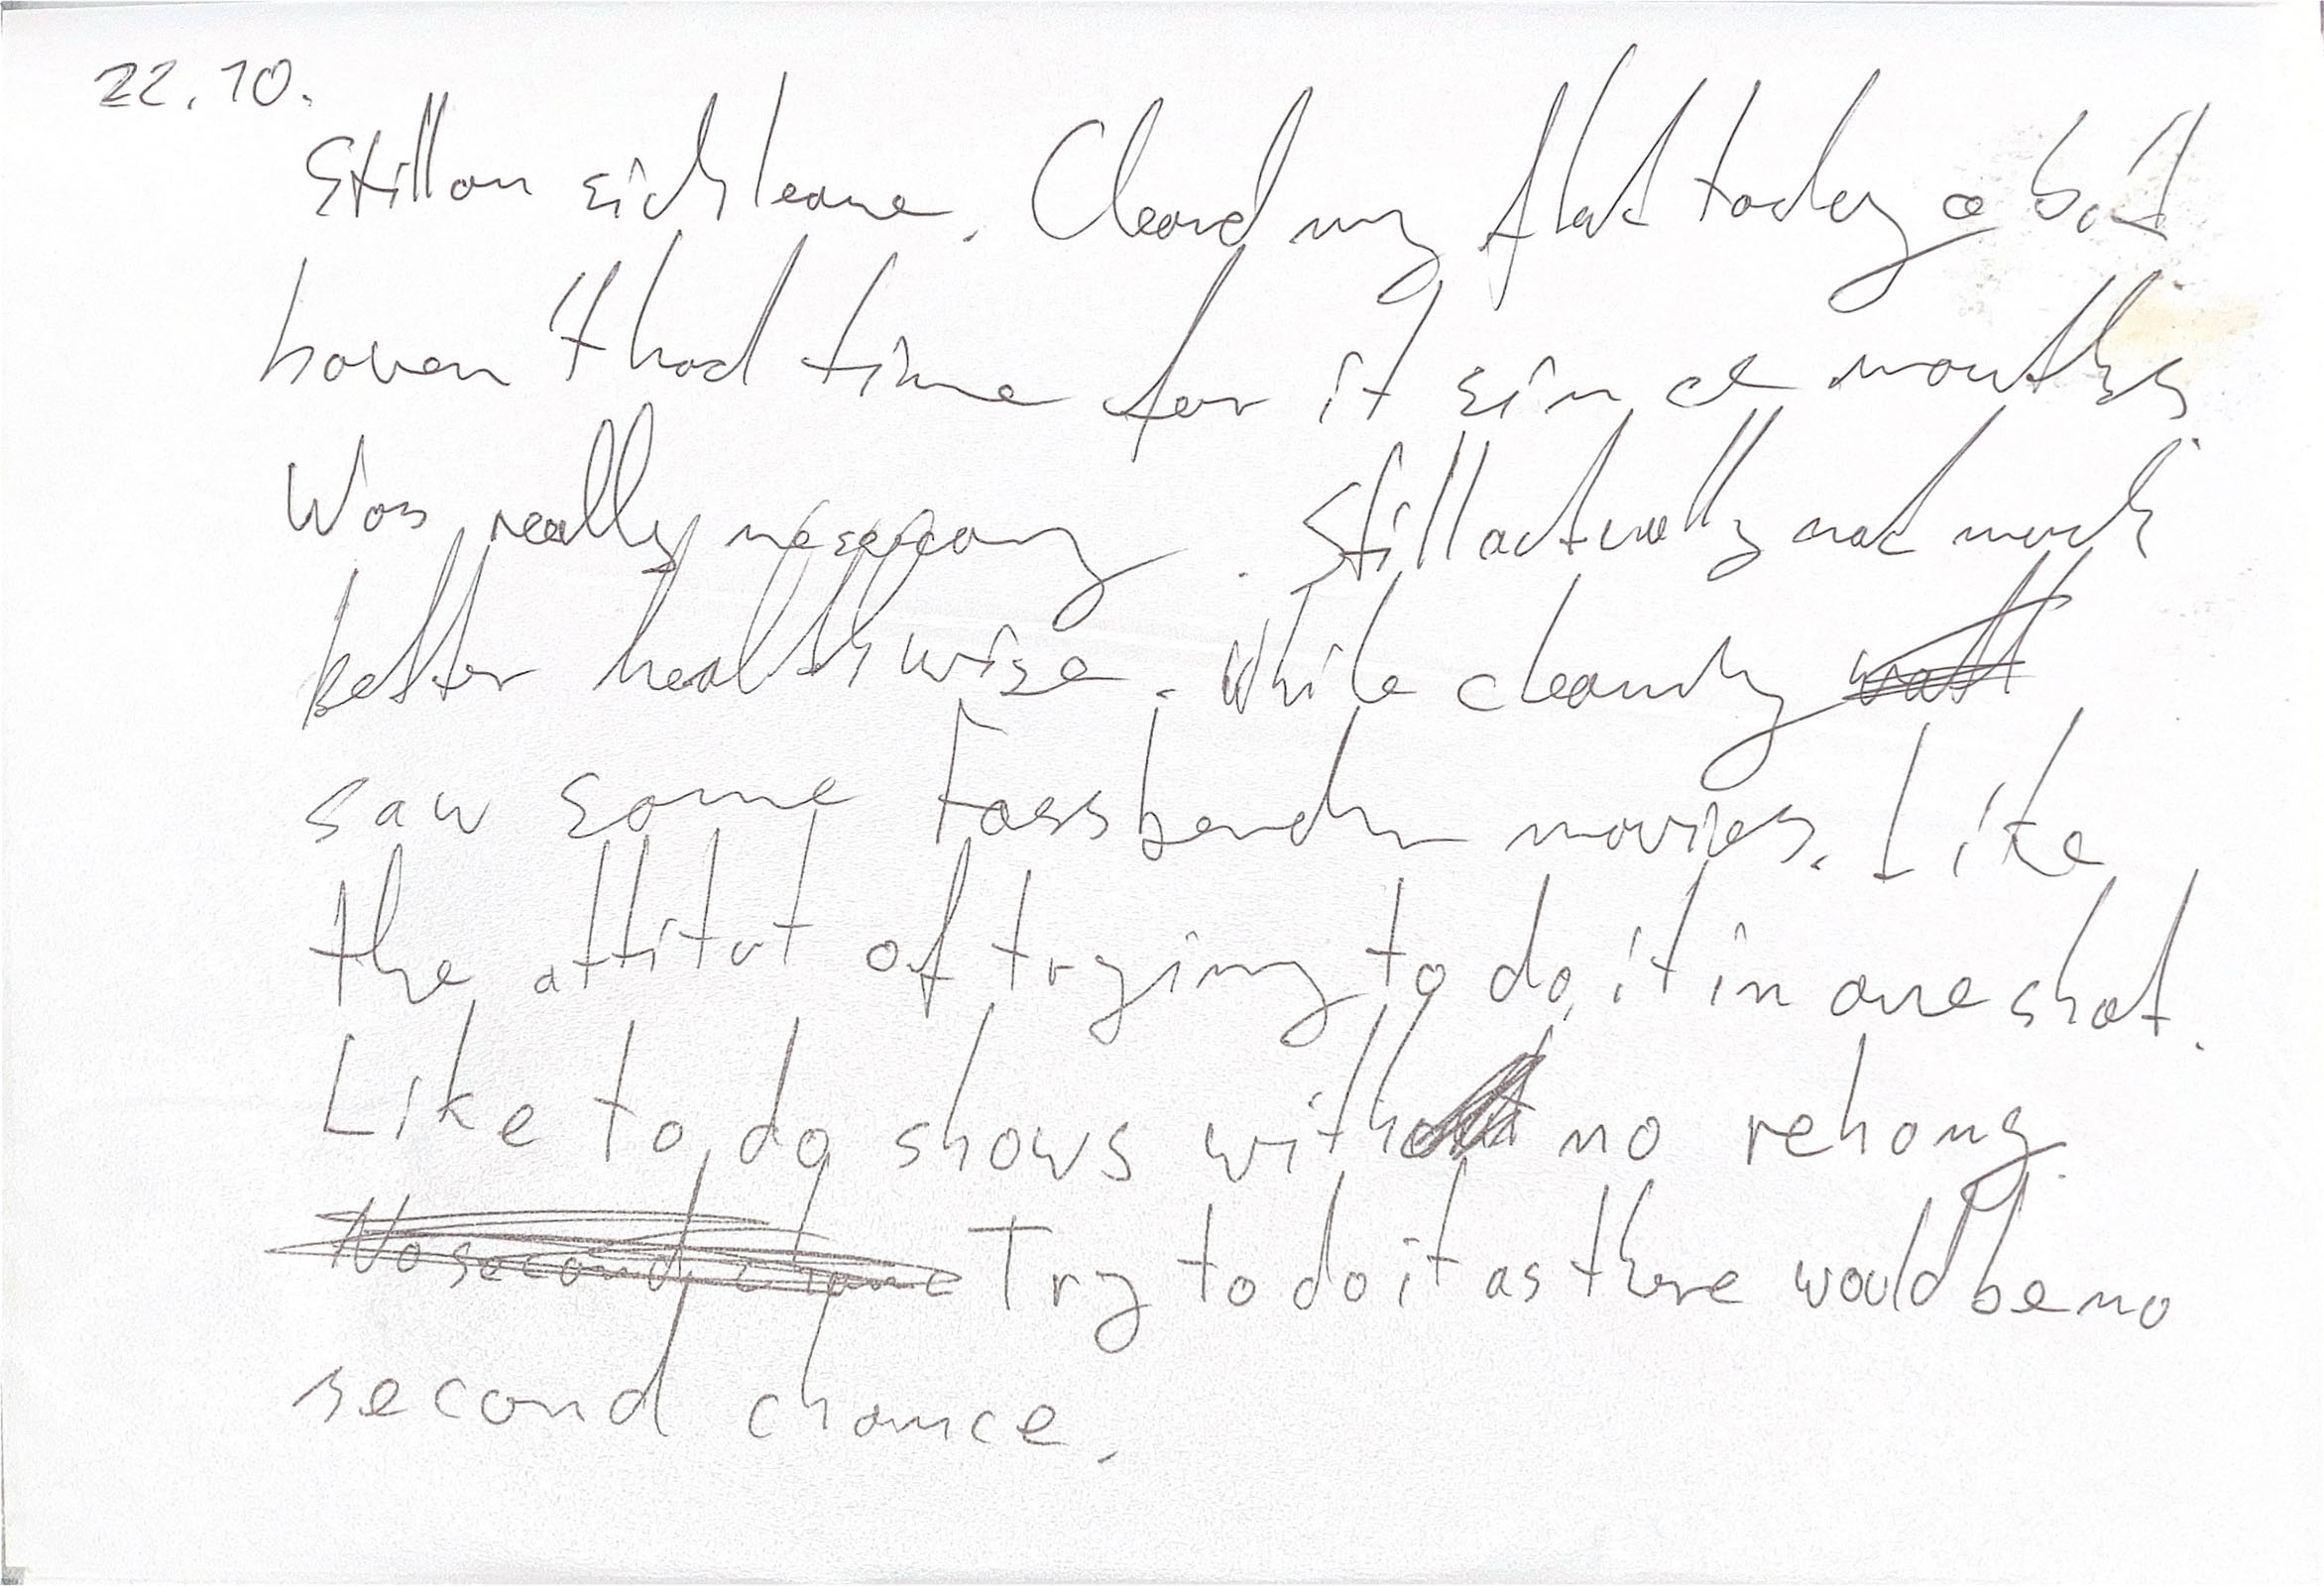 22.10.
Still on sick leave. Cleand my flat today a bit
haven't had time for it since months
Was really necessary. Still actually not much
better healthwise. While cleaning
saw some Fassbender movies. Like
the attitut of trying to do it in one shot.
Like to do shows with no rehang.
No second chance Try to do it as there would be no
second chance.